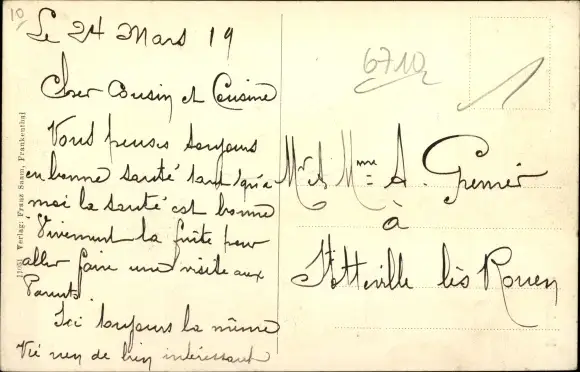 10
Le 24 Mars 19
6710
Cher Cousin et Cousine
Vous penses toujours
en bonne santé tant qu'a
moi la santé est bonne
Vivement la fuite pour
aller faire une visite aux
Parents.
Ici toujours la même
Vie rien de bien intéressant
Mr et Mme A. Grenier
à
Sotteville lès Rouen
11051 Verlag: Franz Saam, Frankenthal